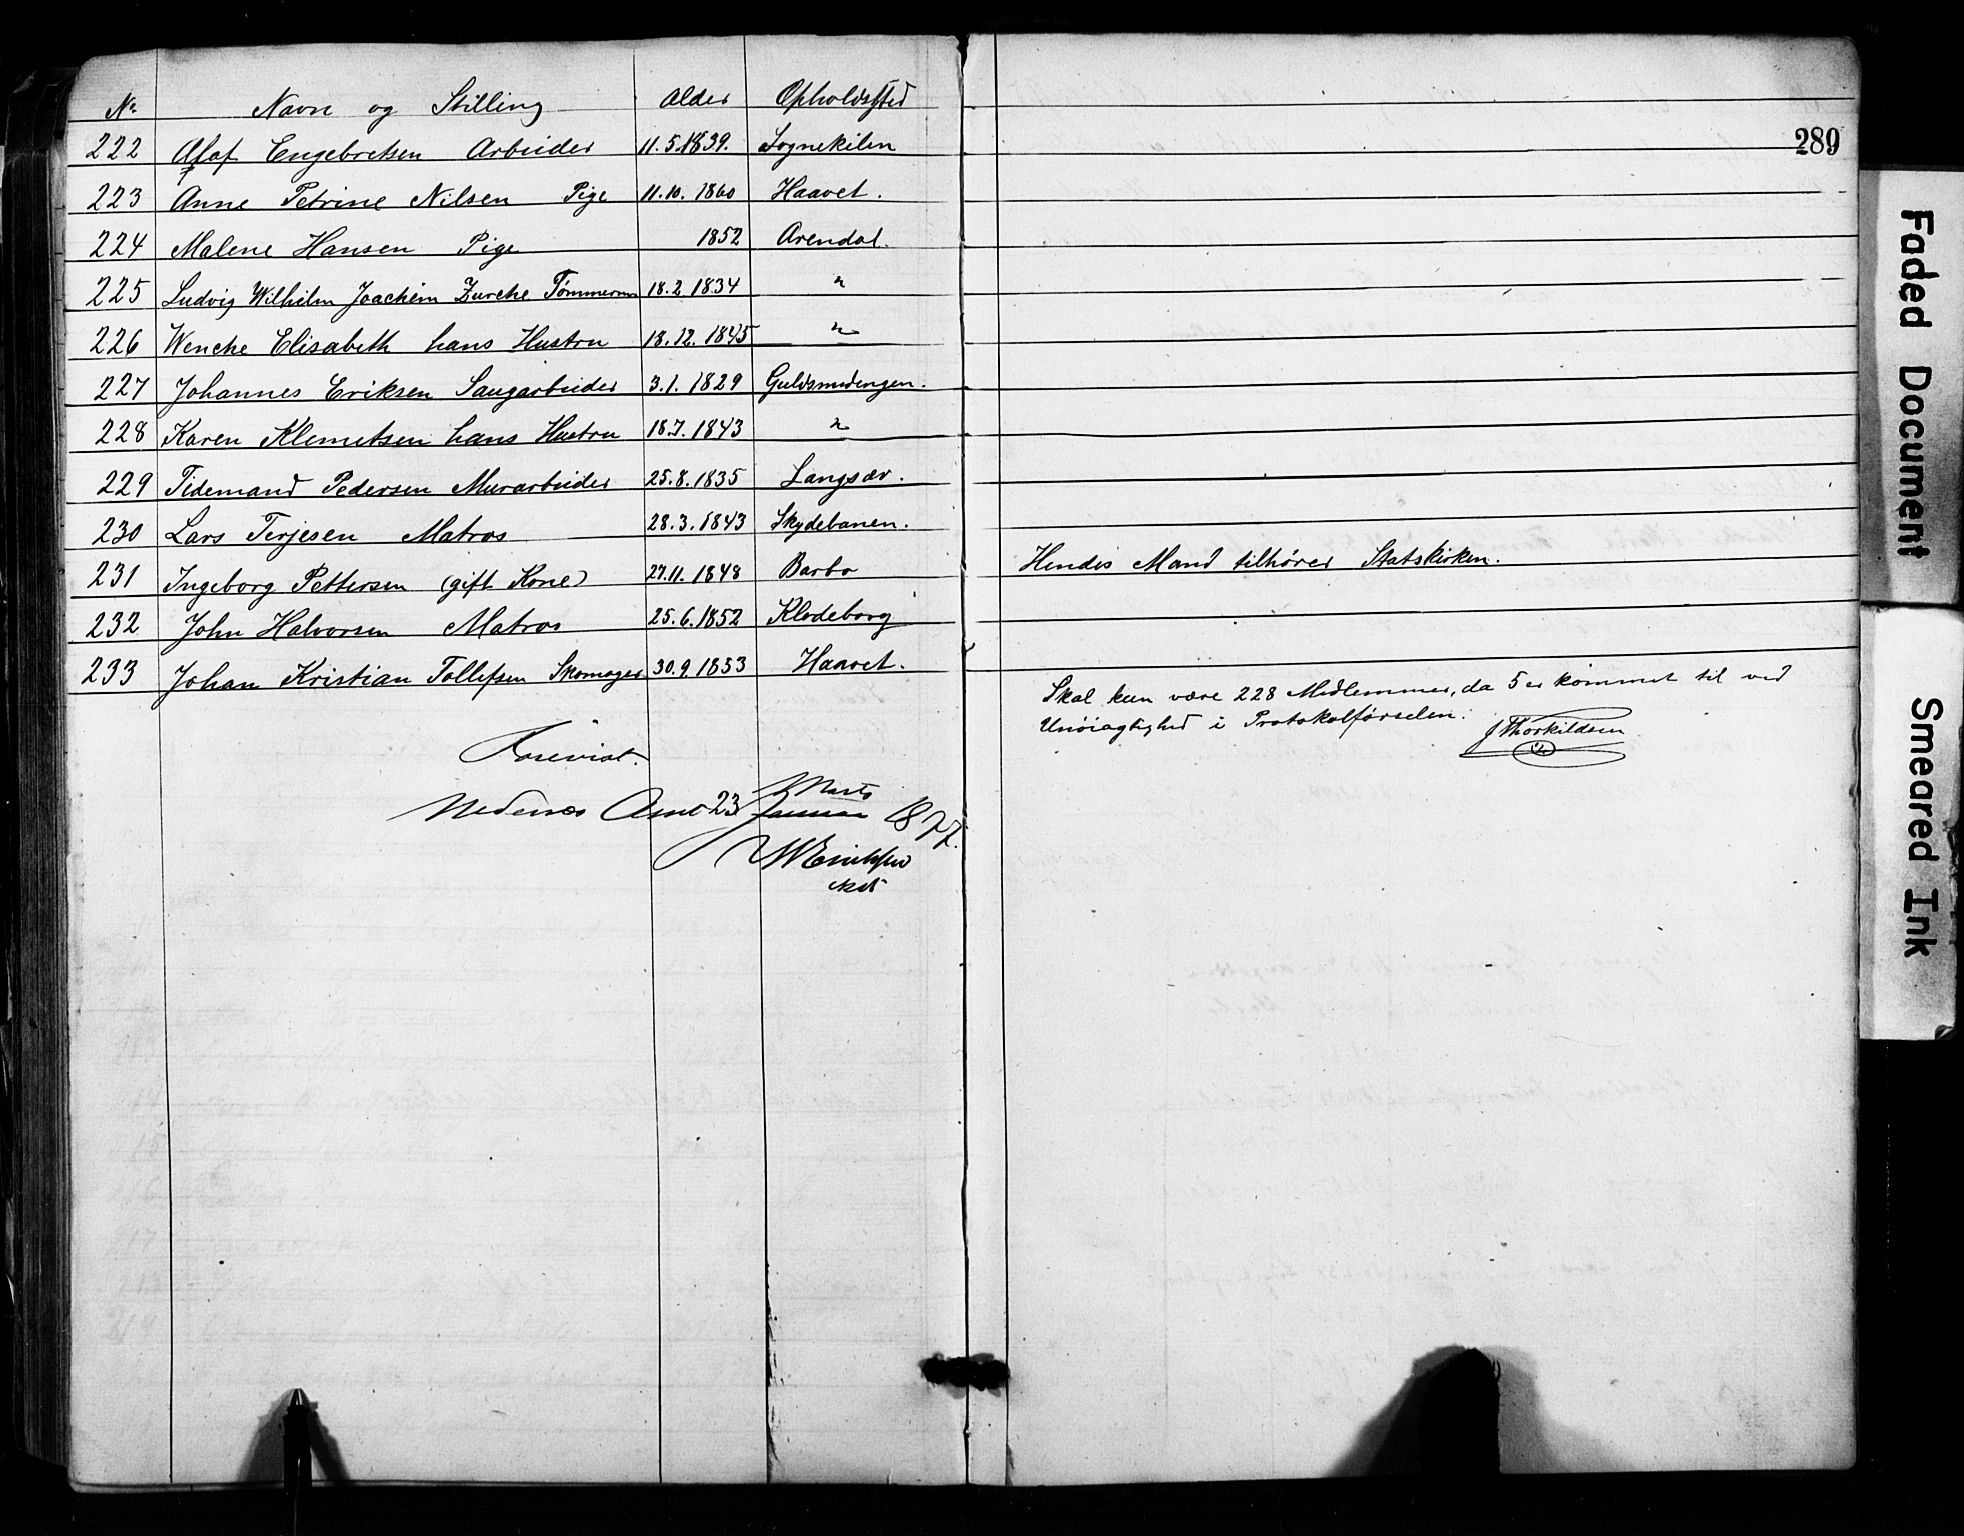 No Navn og Stilling Alder Opholdssted
289
222 Olaf Engebretsen Arbeider 11.5.1839. Sognekilen
223 Anne Petrine Nilsen Pige 11.10.1860 Haavet.
224 Malene Hansen Pige 1852 Arendal.
225 Ludvig Wilhilm Joachim Zurche Tømmerm 18.2 1834 "
226 Wenche Elisabeth hans Hustru 18.12.1845 "
227 Johannes Eriksen Saugarbeider 3.1.1829 Guldsmedengen.
228 Karen Klemetsen hans Hustru 18.7.1843 "
229 Tidemand Pedersen Murarbeider 25.8.1835 Langsæv.
230 Lars Terjesen Matros 28.3.1843 Skydebanen.
231 Ingeborg Pettersen (gift Kone) 27.11.1848 Barbo Hendes Mand tilhører Statskirken.
232 John Halvorsen Matros 25.6.1852 Klodeborg
233 Johan Kristian Tollefsen Skomager 30.9.1853 Haavet.
Skal kun være 228 Medlemmer, da 5 er kommet til ved
Unøiagtighed i Protokolførselen.
J Thorkildsen
Forevist.
Marts
Nedenæs Amt 23 Januar 1877.